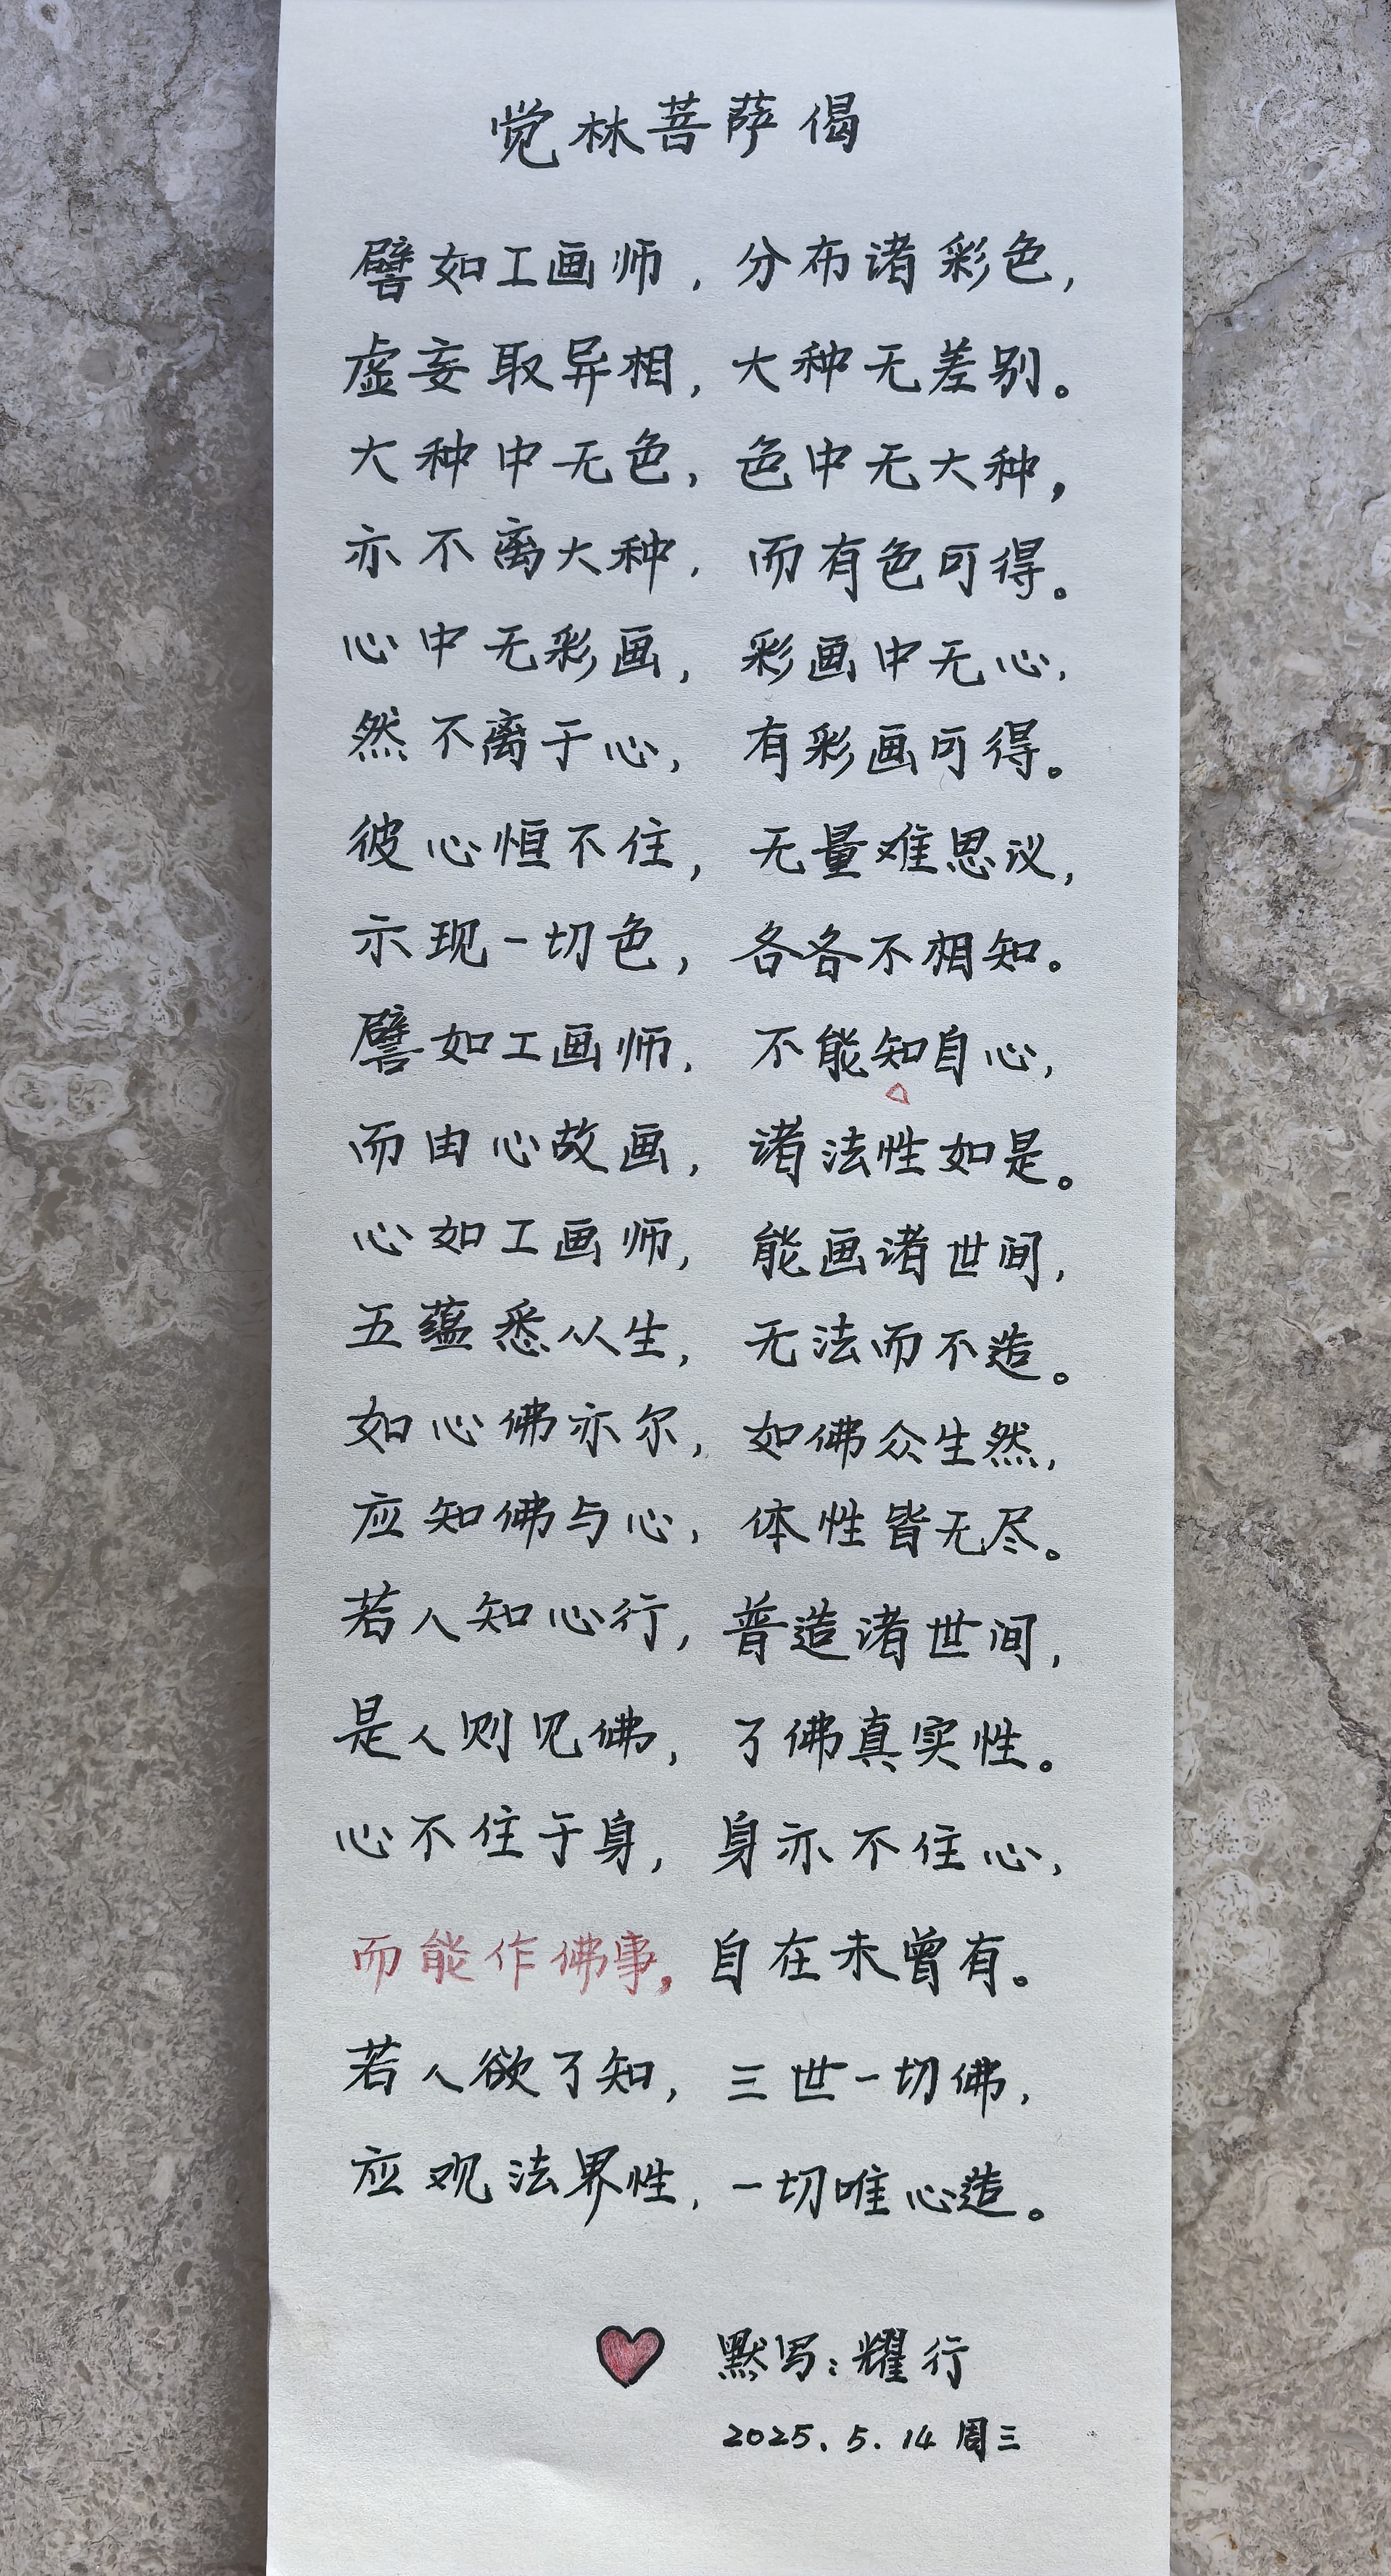 觉林菩萨偈
譬如工画师，分布诸彩色，
虚妄取异相，大种无差别。
大种中无色，色中无大种，
亦不离大种，而有色可得。
心中无彩画，彩画中无心，
然不离于心，有彩画可得。
彼心恒不住，无量难思议，
示现一切色，各各不相知。
譬如工画师，不能知自心，
而由心故画，诸法性如是。
心如工画师，能画诸世间，
五蕴悉从生，无法而不造。
如心佛亦尔，如佛众生然，
应知佛与心，体性皆无尽。
若人知心行，普造诸世间，
是人则见佛，了佛真实性。
心不住于身，身亦不住心，
而能作佛事，自在未曾有。
若人欲了知，三世一切佛，
应观法界性，一切唯心造。
默写：耀行
2025.5.14 周三